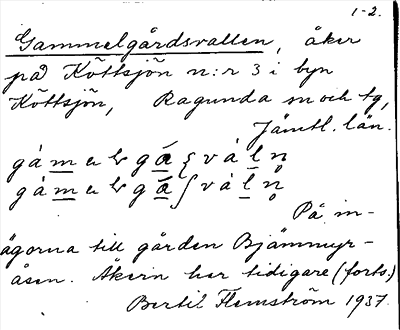 1-2.
Gammelgårdsvallen, åker
på Köttsjön n:r 3 i byn
Köttsjön, Ragunda sn och tg,
Jämtl. län.
På in-
ägorna till gården Bjämmyr-
åsen. Åkern har tidigare (forts.)
Bertil Flemström 1937.